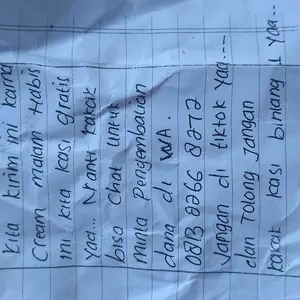 Kita kirim ini karna
Cream malam Habis
ini kita kas gratis
Yaa... Nanti kakak
bisa Chat untuk
minta Pengembalian
dana di WA.
0813 2266 8272
Jangan di tiktok Yaa...
dan Tolong Jangan
kakak kasi bintang 1 Yaa..